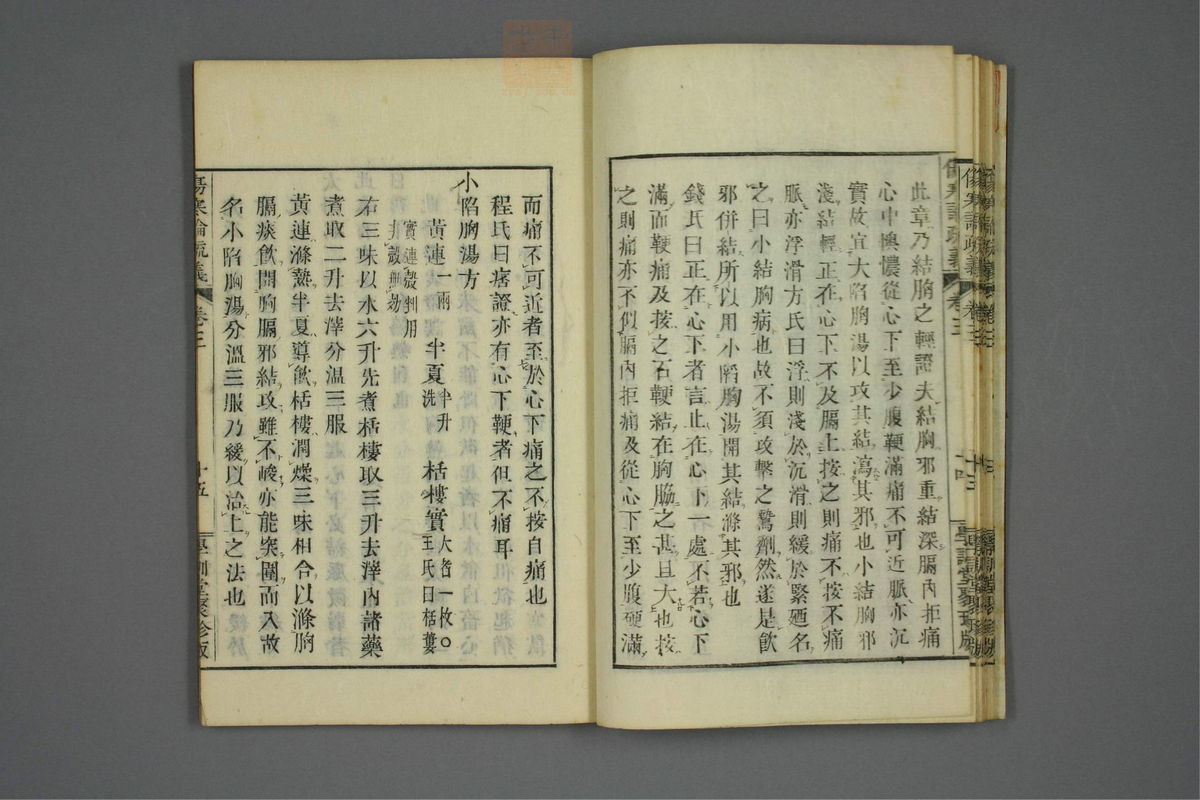 此章乃結胸之輕證夫結胸邪重結深膈內拒痛
心中懊憹從心下至少腹鞕滿痛不可近脈亦沉
實故宜大陷胸湯以攻其結瀉其邪也小結胸邪
淺結輕正在心下不及膈上按之則痛不按不痛
脈亦浮滑方氏曰浮則淺於沉滑則緩於緊廼名
之曰小結胸病也故不須攻擊之驚劑然遂是飮
邪併結所以用小䧟胸湯開其結滌其邪也
錢氏曰正在心下者言止在心下一處不若心下
滿而鞕痛及按之石鞕結在胸脇之甚且大也按
之則痛亦不似膈內拒痛及從心下至少腹硬滿
傷寒論疏義
卷三
十四
學訓堂聚珍版
而痛不可近者至於心下痛之不按自痛也
程氏曰痞證亦有心下鞕者但不痛耳
小陷胸湯方
黃連一兩 半夏半升洗 栝樓實大者一枚○王氏曰栝蔞
實連殼剉用
去三味以水六升先煮栝樓取三升去滓內諸藥
煮取二升去滓分溫三服
黃連滌熱半夏導飮栝樓潤燥三味相合以滌胸
膈痰飮開胸膈邪結攻雖不峻亦能突圍而入故
名小陷胸湯分溫三服乃緩以治上之法也
傷寒論疏義
卷三
十五
學訓堂聚珍版